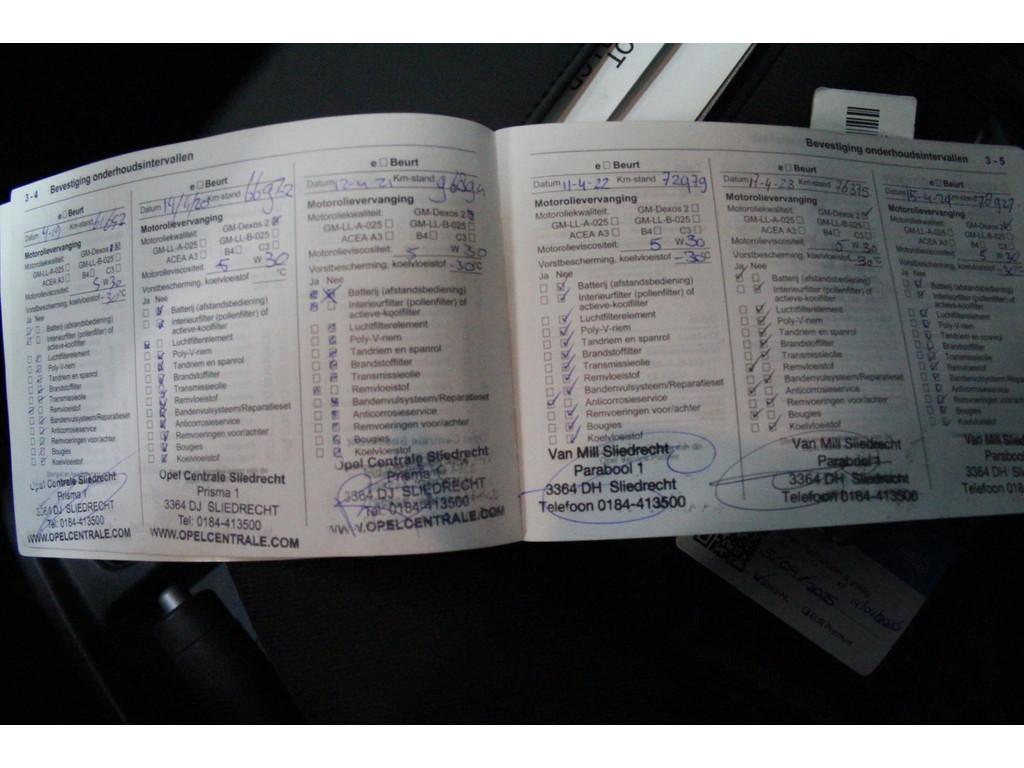 3 - 4 Bevestiging onderhoudsintervallen
e Beurt
Datum Km-stand 61652
Motorolievervanging
Motoroliekwaliteit: GM-Dexos 2
GM-LL-A-025 GM-LL-B-025
ACEA A3 B4 C3
Motorolieviscositeit: 5 W 30
Vorstbescherming, koelvloeistof -30 °C
Ja Nee
Batterij (afstandsbediening)
Interieurfilter (pollenfilter) of
actieve-koolfilter
Luchtfilterelement
Poly-V-riem
Tandriem en spanrol
Brandstoffilter
Transmissieolie
Remvloeistof
Bandenvulsysteem/Reparatieset
Anticorrosieservice
Remvoeringen voor/achter
Bougies
Koelvloeistof
Opel Centrale Sliedrecht
Prisma 1
3364 DJ SLIEDRECHT
Tel: 0184-413500
WWW.OPELCENTRALE.COM
e Beurt
Datum 14/4/20 Km-stand
Motorolievervanging
Motoroliekwaliteit: GM-Dexos 2
GM-LL-A-025 GM-LL-B-025
ACEA A3 B4 C3
Motorolieviscositeit: 5 W 30
Vorstbescherming, koelvloeistof °C
Ja Nee
Batterij (afstandsbediening)
Interieurfilter (pollenfilter) of
actieve-koolfilter
Luchtfilterelement
Poly-V-riem
Tandriem en spanrol
Brandstoffilter
Transmissieolie
Remvloeistof
Bandenvulsysteem/Reparatieset
Anticorrosieservice
Remvoeringen voor/achter
Bougies
Koelvloeistof
Opel Centrale Sliedrecht
Prisma 1
3364 DJ SLIEDRECHT
Tel: 0184-413500
WWW.OPELCENTRALE.COM
e Beurt
Datum 12-4-21 Km-stand
Motorolievervanging
Motoroliekwaliteit: GM-Dexos 2
GM-LL-A-025 GM-LL-B-025
ACEA A3 B4 C3
Motorolieviscositeit: 5 W 30
Vorstbescherming, koelvloeistof -30°C
Ja Nee
Batterij (afstandsbediening)
Interieurfilter (pollenfilter) of
actieve-koolfilter
Luchtfilterelement
Poly-V-riem
Tandriem en spanrol
Brandstoffilter
Transmissieolie
Remvloeistof
Bandenvulsysteem/Reparatieset
Anticorrosieservice
Remvoeringen voor/achter
Bougies
Koelvloeistof
Opel Centrale Sliedrecht
Prisma 1
3364 DJ SLIEDRECHT
Tel: 0184-413500
WWW.OPELCENTRALE.COM
Bevestiging onderhoudsintervallen 3 - 5
e Beurt
Datum 11-4-22 Km-stand 72979
Motorolievervanging
Motoroliekwaliteit: GM-Dexos 2
GM-LL-A-025 GM-LL-B-025
ACEA A3 B4 C3
Motorolieviscositeit: 5 W 30
Vorstbescherming, koelvloeistof -30°C
Ja Nee
Batterij (afstandsbediening)
Interieurfilter (pollenfilter) of
actieve-koolfilter
Luchtfilterelement
Poly-V-riem
Tandriem en spanrol
Brandstoffilter
Transmissieolie
Remvloeistof
Bandenvulsysteem/Reparatieset
Anticorrosieservice
Remvoeringen voor/achter
Bougies
Koelvloeistof
Van Mill Sliedrecht
Parabool 1
3364 DH Sliedrecht
Telefoon 0184-413500
e Beurt
Datum 17-4-23 Km-stand 76375
Motorolievervanging
Motoroliekwaliteit: GM-Dexos 2
GM-LL-A-025 GM-LL-B-025
ACEA A3 B4 C3
Motorolieviscositeit: 5 W 30
Vorstbescherming, koelvloeistof -30°C
Ja Nee
Batterij (afstandsbediening)
Interieurfilter (pollenfilter) of
actieve-koolfilter
Luchtfilterelement
Poly-V-riem
Tandriem en spanrol
Brandstoffilter
Transmissieolie
Remvloeistof
Bandenvulsysteem/Reparatieset
Anticorrosieservice
Remvoeringen voor/achter
Bougies
Koelvloeistof
Van Mill Sliedrecht
Parabool 1
3364 DH Sliedrecht
Telefoon 0184-413500
e Beurt
Datum 15-4-24 Km-stand 78927
Motorolievervanging
Motoroliekwaliteit: GM-Dexos 2
GM-LL-A-025 GM-LL-B-025
ACEA A3 B4 C3
Motorolieviscositeit: 5 W 30
Vorstbescherming, koelvloeistof
Ja Nee
Batterij (afstandsbediening)
Interieurfilter (pollenfilter) of
actieve-koolfilter
Luchtfilterelement
Poly-V-riem
Tandriem en spanrol
Brandstoffilter
Transmissieolie
Remvloeistof
Bandenvulsysteem/Reparatieset
Anticorrosieservice
Remvoeringen voor/achter
Bougies
Koelvloeistof
Van Mill Slied
Parabool
3364 DH Sl
Telefoon 018